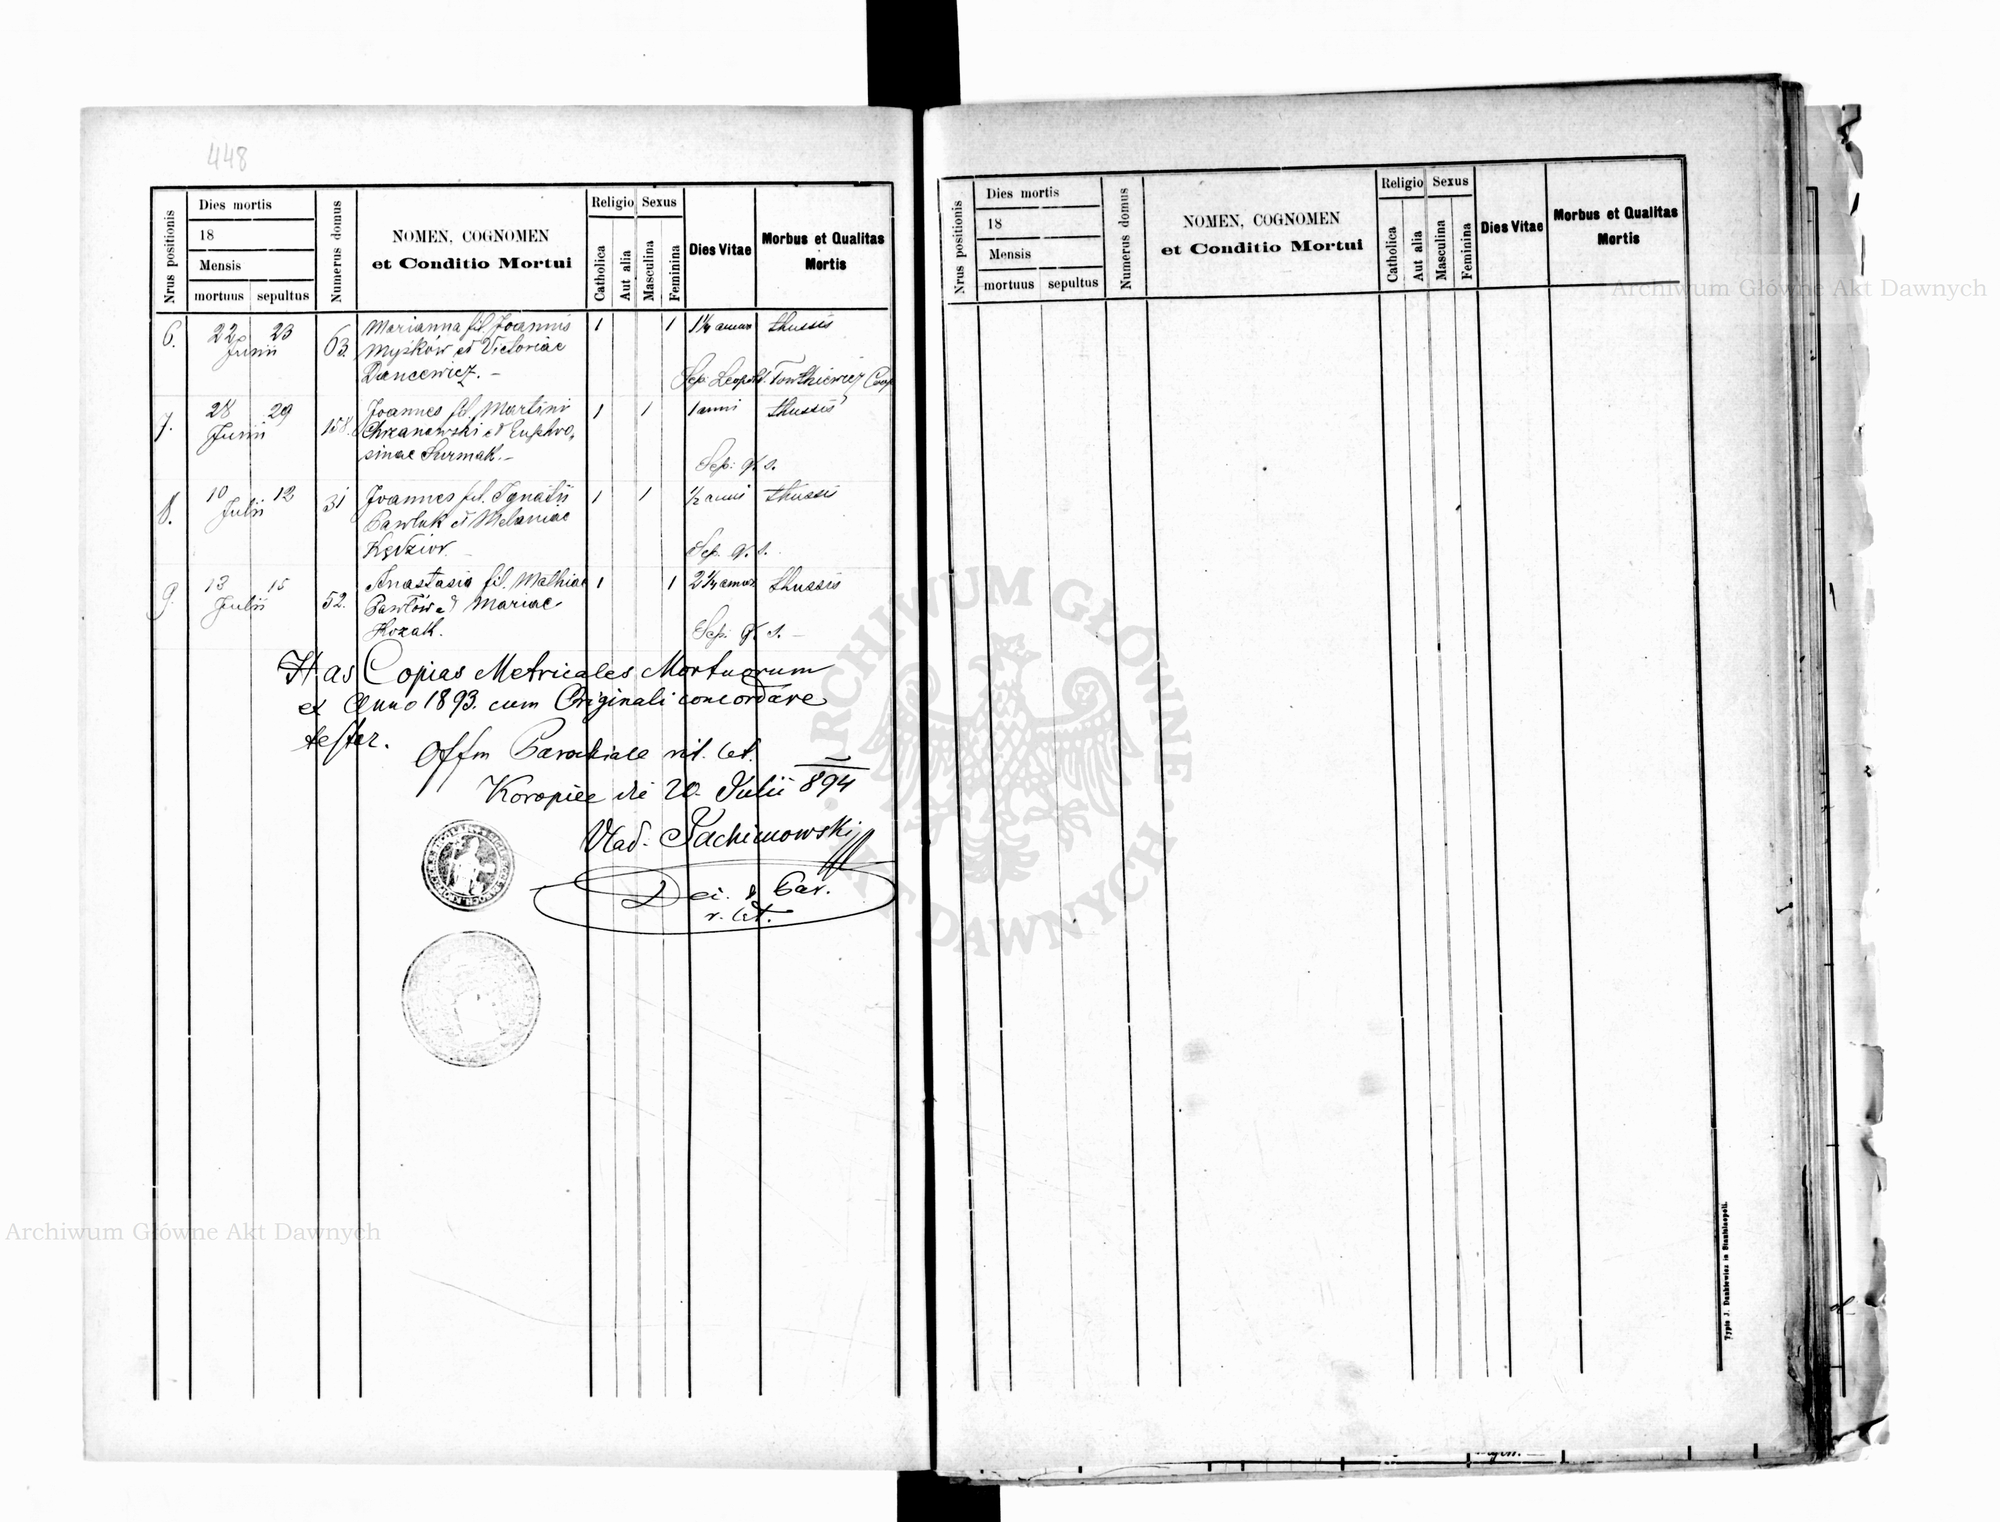 448
Nrus positionis
Dies mortis
18
Mensis
mortuus sepultus
Numerus domus
NOMEN, COGNOMEN
et Conditio Mortui
Religio Sexus
Catholica
Aut alia
Masculina
Feminina
Dies Vitae
Morbus et Qualitas
Mortis
6. 22 23 63. Marianna fil. Joannis 1 1 thussis
Junii Myśków et Victoriae
Dancewicz. –
Sep. Leopold.
7. 28 29 158. Joannes fil. Martini 1 1 1 anni thussis
Junii Chrzanowski et Euphro-
sinae Surmak. –
Sep. q. s.
8. 10 12 31 Joannes fil. Ignatii 1 1 1/2 anni thussis
Julii Pawluk et Melaniae
Kędzior. –
Sep. q. s.
9. 13 15 52. Anastasia fil. Mathiae 1 1 thussis
Julii Pawłów et Mariae
Kozak.
Sep. q. s. –
Has Copias Metricales Mortuorum
ex Anno 1893. cum Originali concordare
testor.
Offm Parochiale rit. lat.
Koropiec die 20. Julii 894
Vlad. Jachimowski
Dec. & Par.
r. lat.
Nrus positionis
Dies mortis
18
Mensis
mortuus sepultus
Numerus domus
NOMEN, COGNOMEN
et Conditio Mortui
Religio Sexus
Catholica
Aut alia
Masculina
Feminina
Dies Vitae
Morbus et Qualitas
Mortis
Typis J. Dankiewicz in Stanislaopoli.
Archiwum Główne Akt Dawnych
Archiwum Główne Akt Dawnych
ARCHIWUM GŁÓWNE
AKT DAWNYCH